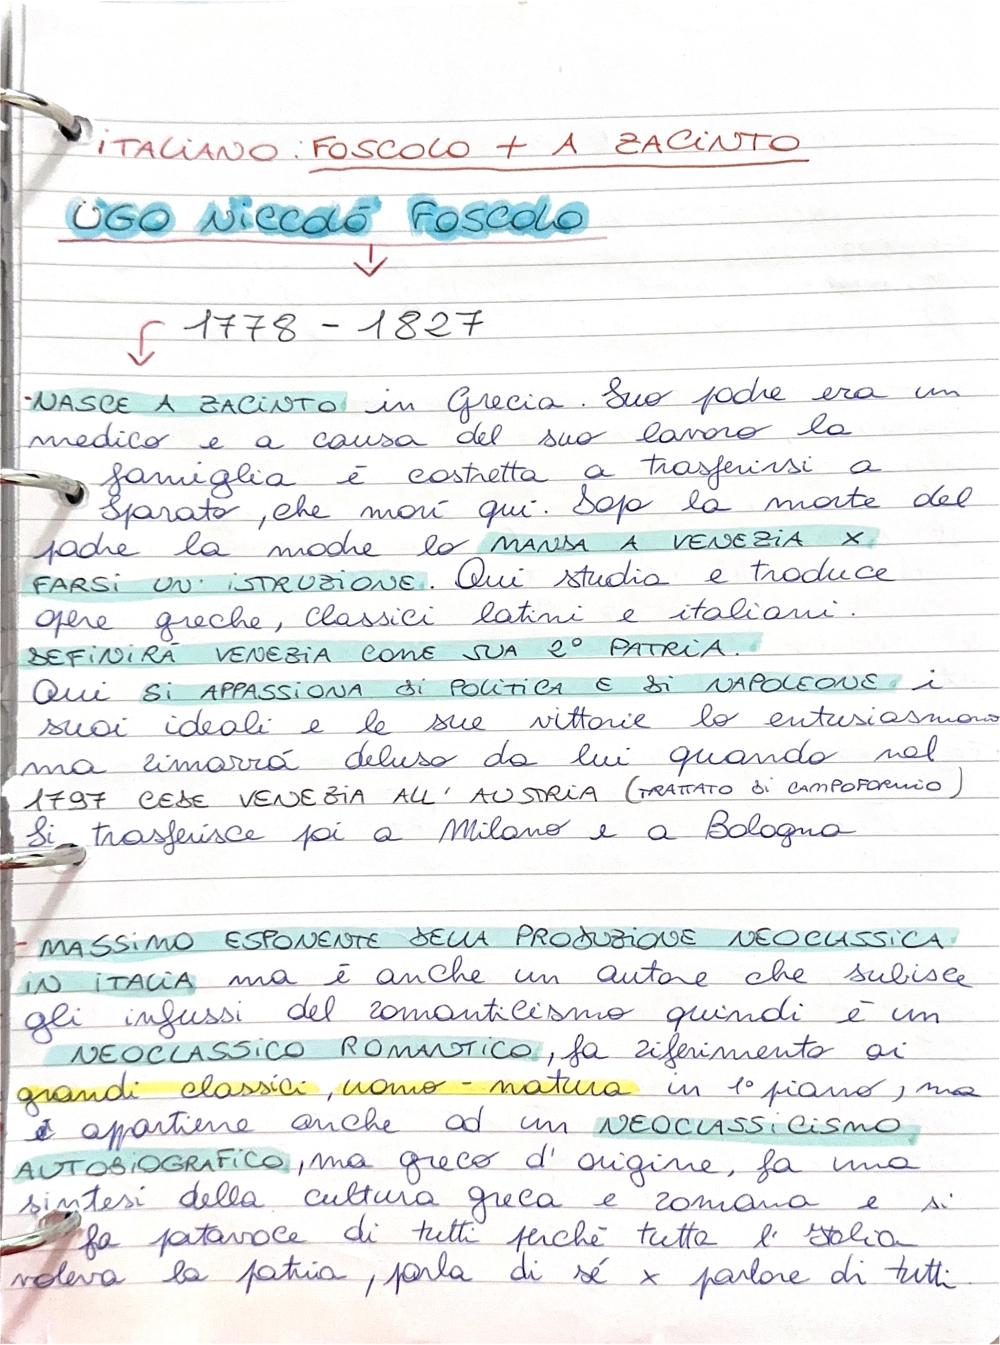 ITALIANO: FOSCOLO + A ZACINTO
UGO NICCOLÓ FOSCOLO
1778 - 1827
- NASCE A ZACINTO in Grecia. Suo padre era un
medico e a causa del suo lavoro la
famiglia é costretta a trasferirsi a
Sparato, che morí qui. Dopo la morte del
padre la madre lo MANDA A VENEZIA X
FARSI UN' ISTRUZIONE. Qui studia e traduce
opere greche, classici latini e italiani.
DEFINIRÁ VENEZIA COME SUA 2° PATRIA.
Qui SI APPASSIONA DI POLITICA E DI NAPOLEONE i
suoi ideali e le sue vittorie lo entusiasmano
ma rimarrá deluso da lui quando nel
1797 CEDE VENEZIA ALL' AUSTRIA (TRATTATO DI CAMPOFORMIO)
Si trasferisce poi a Milano e a Bologna
- MASSIMO ESPONENTE DELLA PRODUZIONE NEOCLASSICA
IN ITALIA ma é anche un autore che subisce
gli infussi del romanticismo quindi é un
NEOCLASSICO ROMANTICO, fa riferimento ai
grandi classici, uomo - natura in 1° piano, ma
appartiene anche ad un NEOCLASSICISMO
AUTOBIOGRAFICO, ma greco d' origine, fa una
sintesi della cultura greca e romana e si
fa patavoce di tutti perché tutta l' Italia
voleva la patria, parla di sé x parlare di tutti